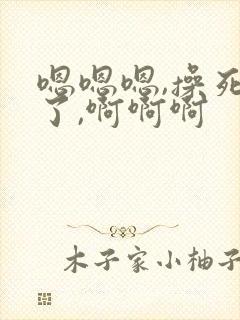 嗯嗯嗯,操死
了,啊啊啊
木子家小柚子